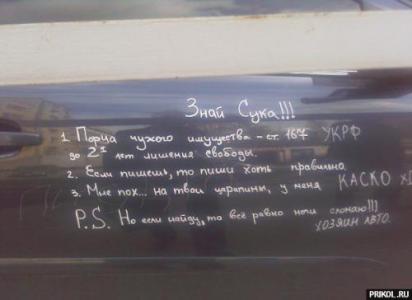 Знай Сука!!!
1. Порча чужого имущества - ст. 167 УКРФ
до 2х лет лишения свободы.
2. Если пишешь, то пиши хоть правильно
3. Мне пох... на твои царапины, у меня КАСКО
P.S. Но если найду, то всё равно ноги сломаю!!!
ХОЗЯИН АВТО.
PRIKOL.RU